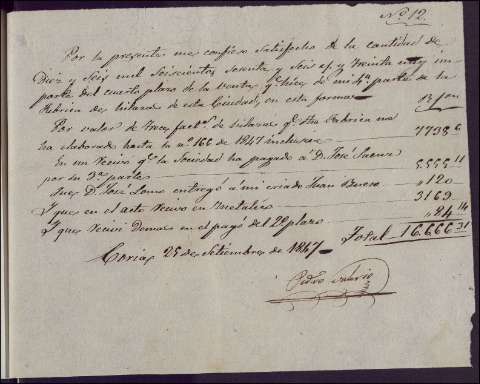 Nº 12
Por la presente me confieso satisfecho de la cantidad de
Diez y Seis mil Seiscientos Sesenta y Seis y treinta
parte del cuarto plazo de la venta q. hice de mi 4ª parte de la
Fabrica de hilaza de esta Ciudad, en esta forma
Por valor de fact.s de hilaza q. dha Fabrica me
ha elaborado hasta la nº 166 de 1847 inclusive 7738 6
En un recivo q. la Sociedad ha pagado á D. José
por su 3ª parte 5555 11
Que D. José entregó á mi criado Juan 120
Y que en el acto recivo en Metalico 3169
Y que recivi Demas en el pago del 2º plazo 84 14
Total 16.666 31
Coria, 25 de Setiembre de 1847
Pedro